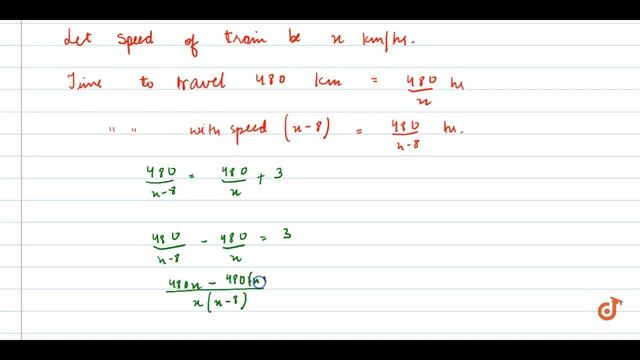 Let speed of train be x km/hr.
Time to travel 480 km = 480/x hr
" " with speed (x-8) = 480/x-8 hr.
480/x-8 = 480/x + 3
480/x-8 - 480/x = 3
480x - 480(x / x(x-8)